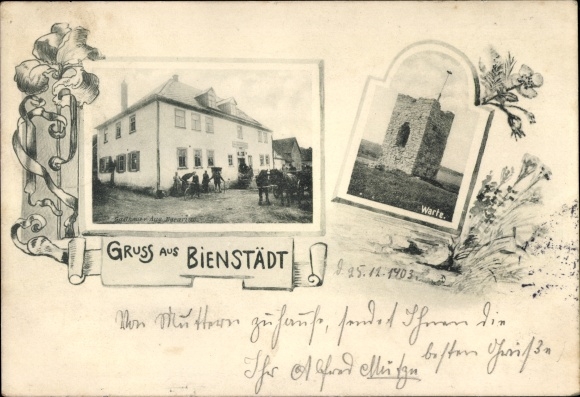 Warte.
GRUSS AUS BIENSTÄDT
d. 25.12.1903.
Von Muttern zuhause, sendet Ihnen die
besten Grüße
Ihr Alfred